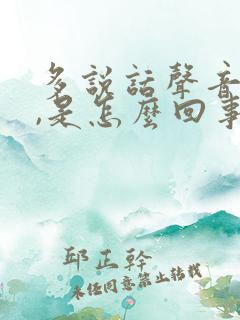 多說話聲音
,是怎麼回事
邱正幹
未经同意禁止转载